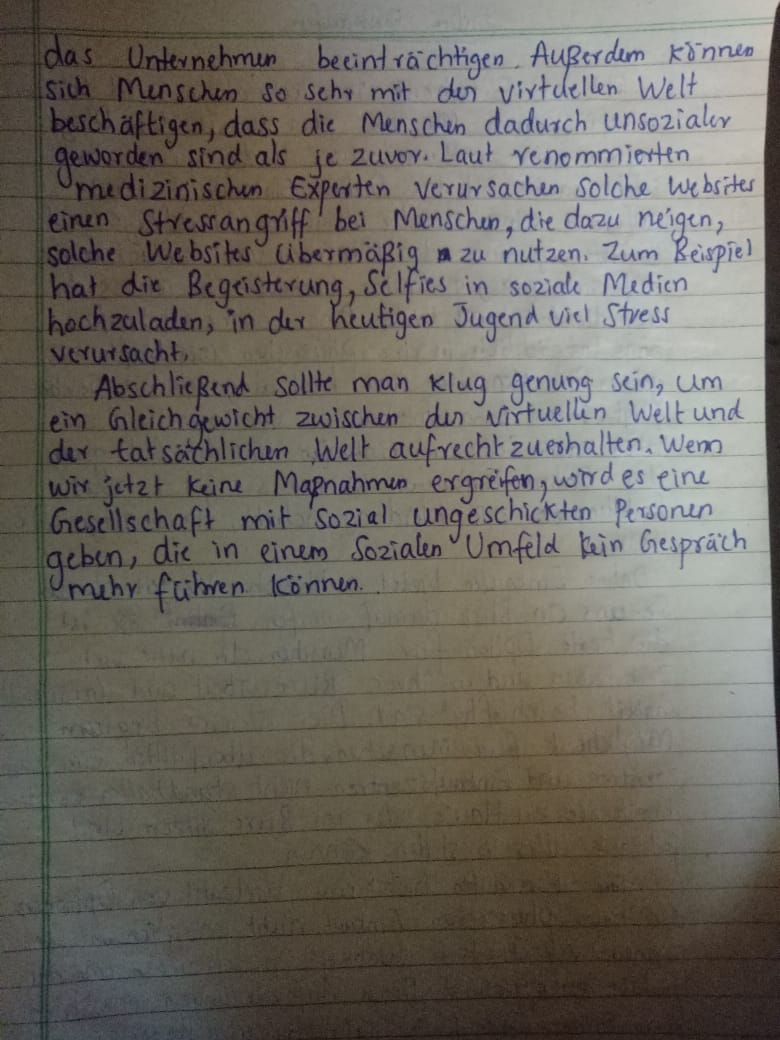 das Unternehmen beeinträchtigen. Außerdem können
sich Menschen so sehr mit der virtuellen Welt
beschäftigen, dass die Menschen dadurch unsozialer
geworden sind als je zuvor. Laut renommierten
medizinischen Experten verursachen solche Websites
einen Stressangriff bei Menschen, die dazu neigen,
solche Websites übermäßig zu nutzen. Zum Beispiel
hat die Begeisterung, Selfies in soziale Medien
hochzuladen, in der heutigen Jugend viel Stress
verursacht.
Abschließend sollte man klug genung sein, um
ein Gleichgewicht zwischen der virtuellen Welt und
der tatsächlichen Welt aufrechtzuerhalten. Wenn
wir jetzt keine Maßnahmen ergreifen, wird es eine
Gesellschaft mit sozial ungeschickten Personen
geben, die in einem Sozialen Umfeld kein Gespräch
mehr führen können.